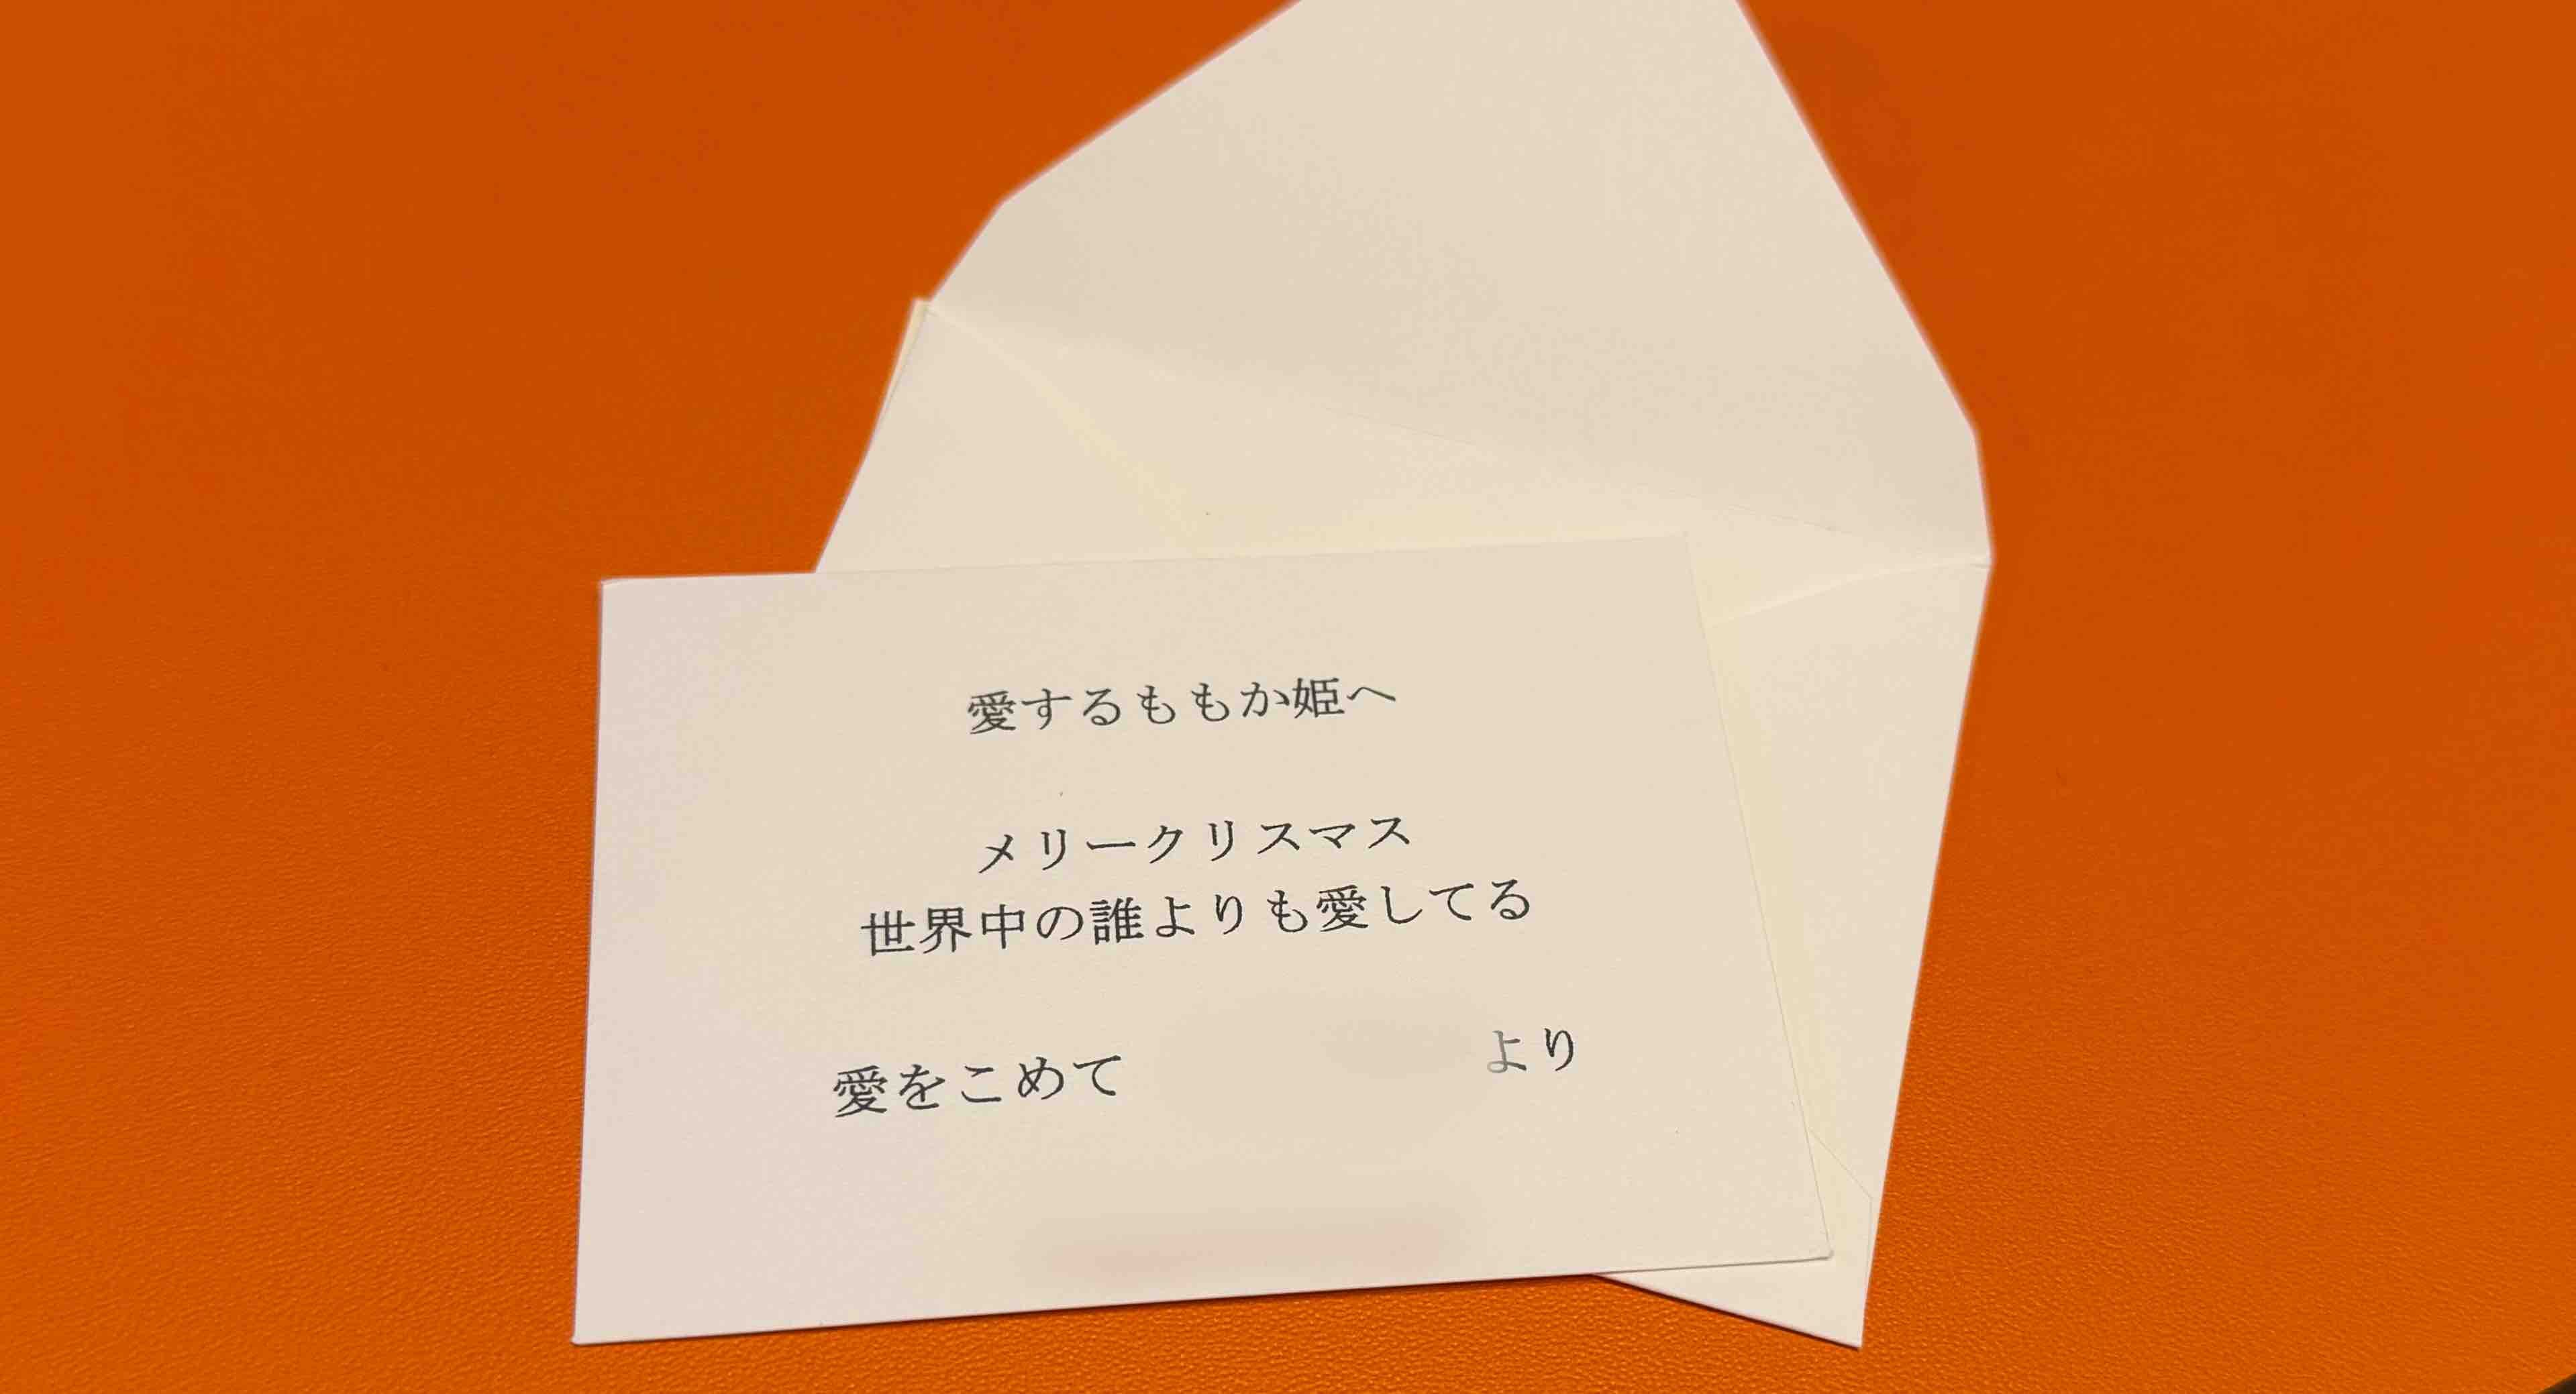 愛するももか姫へ
メリークリスマス
世界中の誰よりも愛してる
愛をこめて より